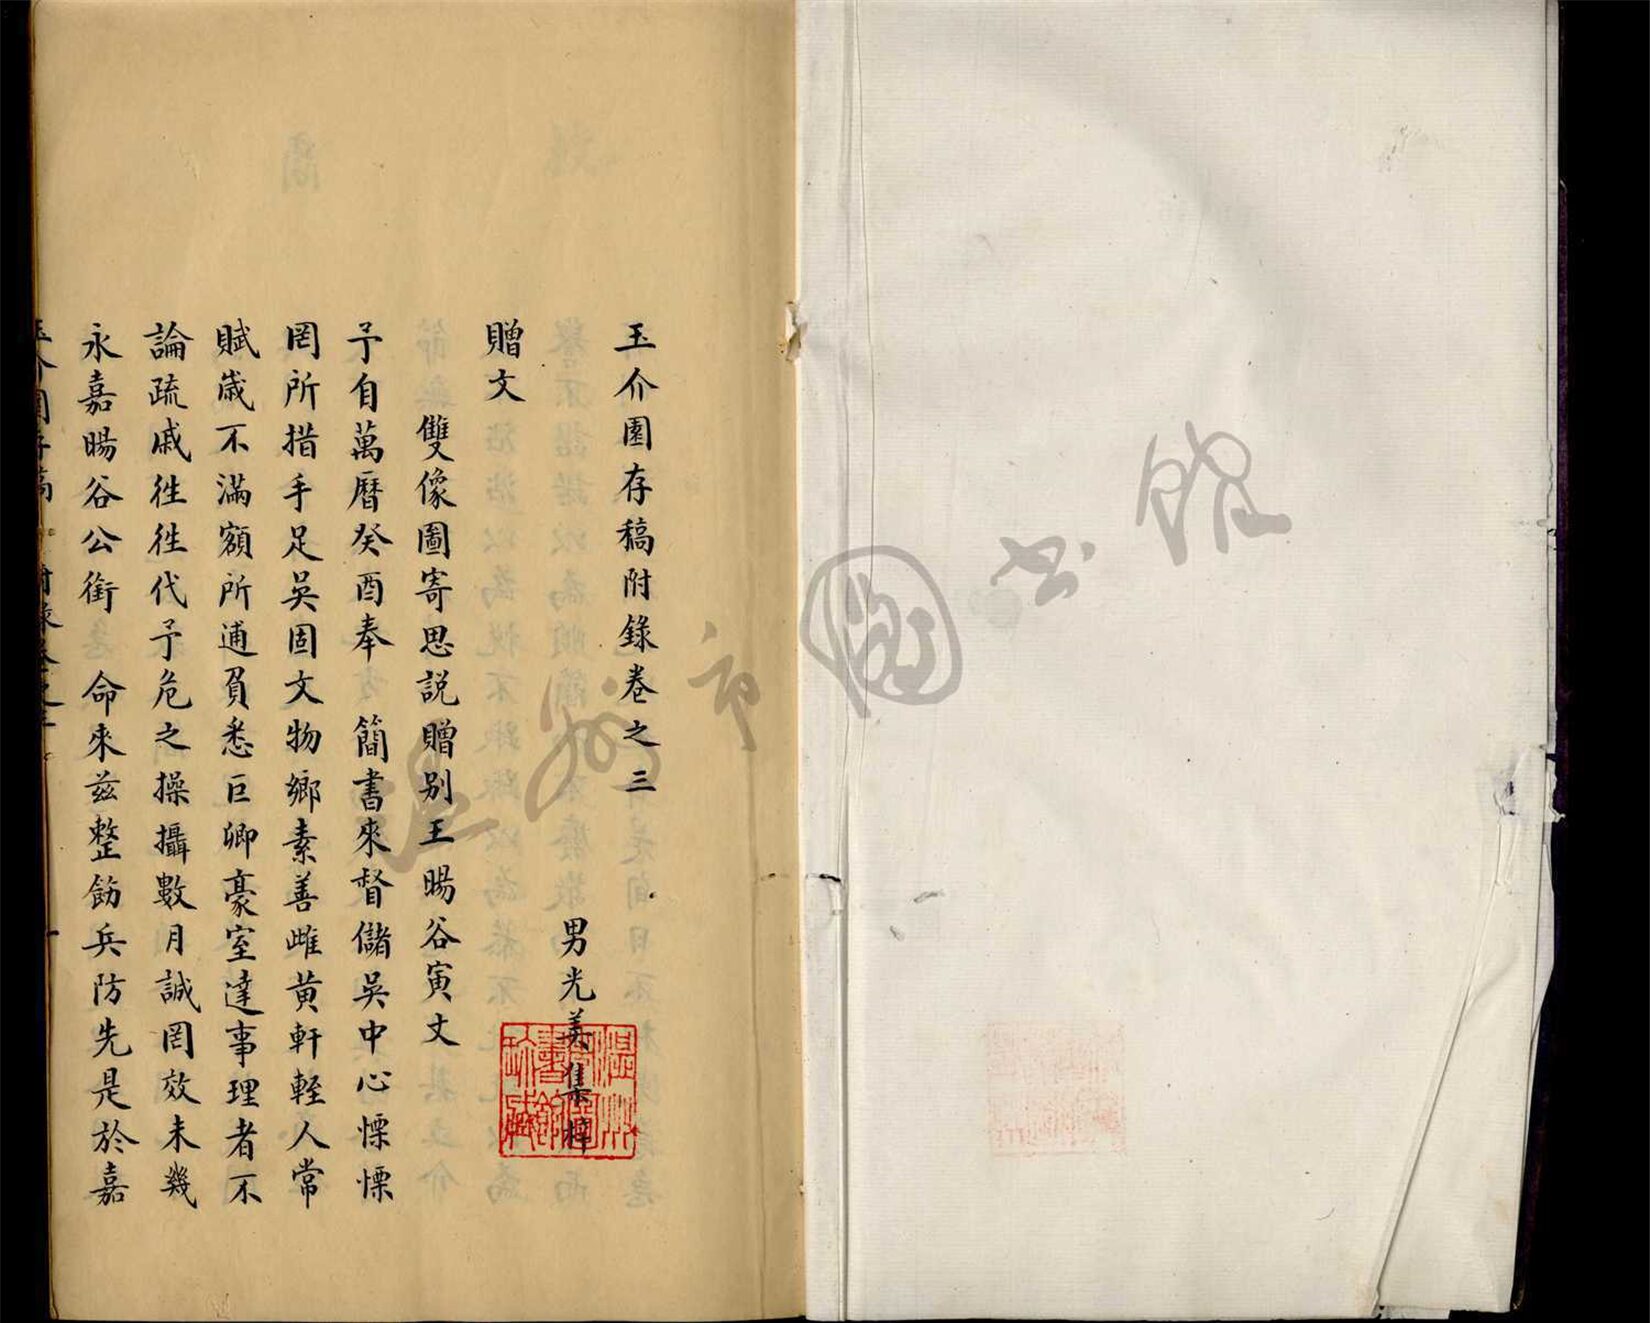 玉介園存稿附錄卷之三
男光美集梓
贈文
雙像圖寄思説贈別王暘谷寅丈
予自萬曆癸酉奉 簡書來督儲吳中心慄慄
罔所措手足吳固文物鄉素善雌黄軒輊人常
賦歲不滿額所逋負悉巨卿豪室達事理者不
論疏戚徃徃代予危之操攝數月誠罔效未幾
永嘉暘谷公銜 命來兹整飭兵防先是於嘉
玉介園存稿 附錄卷之三 一
溫州市圖書館